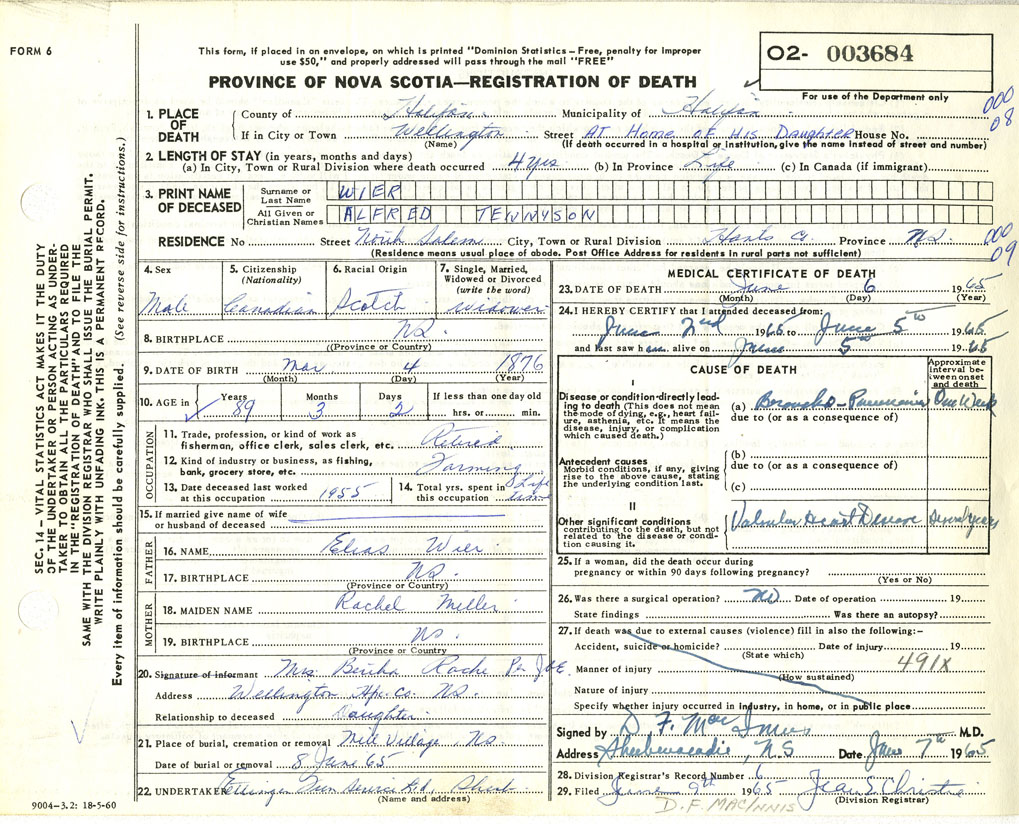 FORM 6
This form, if placed in an envelope, on which is printed "Dominion Statistics – Free, penalty for improper
use $50," and properly addressed will pass through the mail "FREE"
PROVINCE OF NOVA SCOTIA—REGISTRATION OF DEATH
O2- 003684
For use of the Department only
000
08
1. PLACE OF DEATH
County of Halifax Municipality of Halifax
If in City or Town Wellington Street AT Home OF His Daughter House No.
(Name) (If death occurred in a hospital or institution, give the name instead of street and number)
2. LENGTH OF STAY (in years, months and days)
(a) In City, Town or Rural Division where death occurred 4 yrs (b) In Province Life (c) In Canada (if immigrant)
3. PRINT NAME OF DECEASED
Surname or Last Name WIER
All Given or Christian Names ALFRED TENNYSON
RESIDENCE No Street North Salem City, Town or Rural Division Hants Co. Province N.S.
(Residence means usual place of abode. Post Office Address for residents in rural parts not sufficient)
000
09
4. Sex Male
5. Citizenship (Nationality) Canadian
6. Racial Origin Scotch
7. Single, Married, Widowed or Divorced (write the word) Widower
8. BIRTHPLACE N.S.
(Province or Country)
9. DATE OF BIRTH Mar 4 1876
(Month) (Day) (Year)
10. AGE in Years 89 Months 3 Days 2 If less than one day old hrs. or min.
OCCUPATION
11. Trade, profession, or kind of work as
fisherman, office clerk, sales clerk, etc. Retired
12. Kind of industry or business, as fishing,
bank, grocery store, etc. Farming
13. Date deceased last worked
at this occupation 1955
14. Total yrs. spent in
this occupation Life time
15. If married give name of wife
or husband of deceased
FATHER
16. NAME Elias Wier
17. BIRTHPLACE N.S.
(Province or Country)
MOTHER
18. MAIDEN NAME Rachel Miller
19. BIRTHPLACE N.S.
(Province or Country)
20. Signature of informant Mrs Bertha Roche Per
Address Wellington Hfx. Co. N.S.
Relationship to deceased Daughter
21. Place of burial, cremation or removal Mill Village, N.S.
Date of burial or removal 8 June 65
22. UNDERTAKER Ettinger Fun Service Ltd, Shub.
(Name and address)
MEDICAL CERTIFICATE OF DEATH
23. DATE OF DEATH June 6 1965
(Month) (Day) (Year)
24. I HEREBY CERTIFY that I attended deceased from:
June 2nd 1965 to June 5th 1965
and last saw h im alive on June 5th 1965
CAUSE OF DEATH
Approximate interval between onset and death
I
Disease or condition directly leading to death (This does not mean the mode of dying, e.g., heart failure, asthenia, etc. It means the disease, injury, or complication which caused death.)
(a) Broncho-Pneumonia One Week
due to (or as a consequence of)
Antecedent causes
Morbid conditions, if any, giving rise to the above cause, stating the underlying condition last.
(b)
due to (or as a consequence of)
(c)
II
Other significant conditions
contributing to the death, but not related to the disease or condition causing it.
Valvular Heart Disease Several years
25. If a woman, did the death occur during
pregnancy or within 90 days following pregnancy?
(Yes or No)
26. Was there a surgical operation? No Date of operation 19
State findings Was there an autopsy?
27. If death was due to external causes (violence) fill in also the following:–
Accident, suicide or homicide? Date of injury 19
(State which)
491X
Manner of injury
(How sustained)
Nature of injury
Specify whether injury occurred in industry, in home, or in public place
Signed by D F MacInnis M.D.
Address Shubenacadie, N.S Date June 7th 1965
28. Division Registrar's Record Number 6
29. Filed June 9th 1965 Jean E. Christie
(Division Registrar)
D.F. MACINNIS
SEC. 14 – VITAL STATISTICS ACT MAKES IT THE DUTY
OF THE UNDERTAKER OR PERSON ACTING AS UNDER-
TAKER TO OBTAIN ALL THE PARTICULARS REQUIRED
IN THE "REGISTRATION OF DEATH" AND TO FILE THE
SAME WITH THE DIVISION REGISTRAR WHO SHALL ISSUE THE BURIAL PERMIT.
WRITE PLAINLY WITH UNFADING INK. THIS IS A PERMANENT RECORD.
Every item of information should be carefully supplied. (See reverse side for instructions.)
9004–3.2: 18-5-60